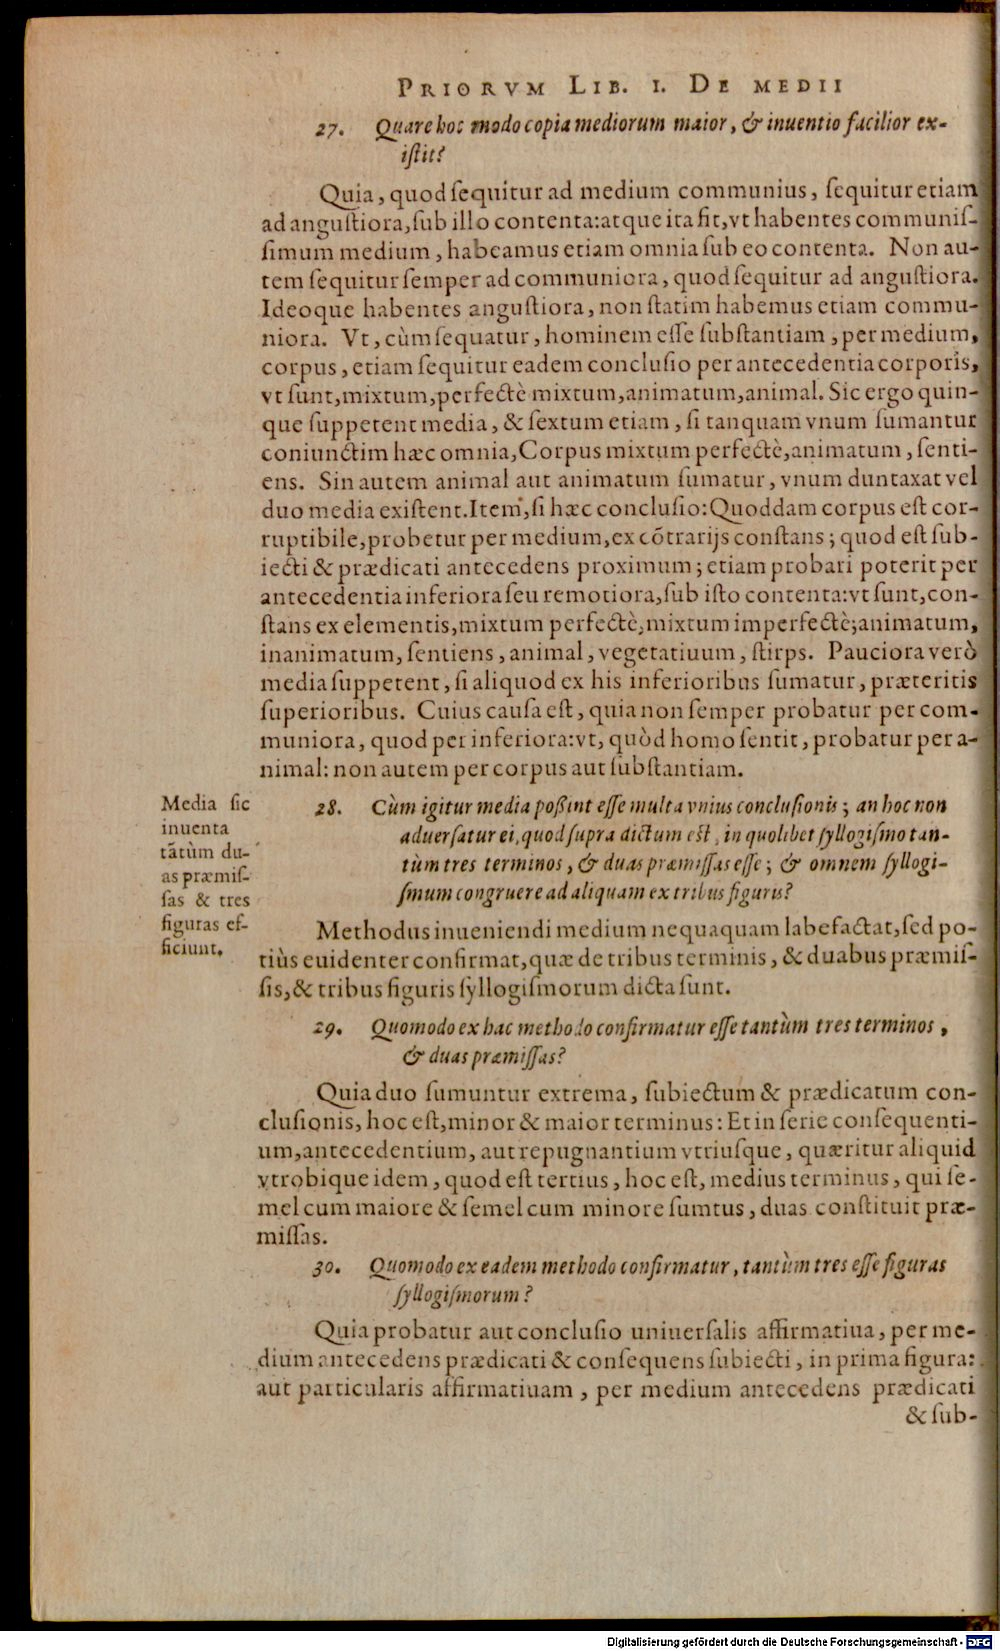 PRIORVM LIB. I. DE MEDII
27. Quare hoc modo copia mediorum maior, & inuentio facilior ex-
iſtit?
Quia, quod ſequitur ad medium communius, ſequitur etiam
ad anguſtiora, ſub illo contenta: atque ita fit, vt habentes communiſ-
ſimum medium, habeamus etiam omnia ſub eo contenta. Non au-
tem ſequitur ſemper ad communiora, quod ſequitur ad anguſtiora.
Ideoque habentes anguſtiora, non ſtatim habemus etiam commu-
niora. Vt, cùm ſequatur, hominem eſſe ſubſtantiam, per medium,
corpus, etiam ſequitur eadem concluſio per antecedentia corporis,
vt ſunt, mixtum, perfectè mixtum, animatum, animal. Sic ergo quin-
que ſuppetent media, & ſextum etiam, ſi tanquam vnum ſumantur
coniunctim hæc omnia, Corpus mixtum perfectè, animatum, ſenti-
ens. Sin autem animal aut animatum ſumatur, vnum duntaxat vel
duo media exiſtent. Item, ſi hæc concluſio: Quoddam corpus eſt cor-
ruptibile, probetur per medium, ex cõtrarijs conſtans; quod eſt ſub-
iecti & prædicati antecedens proximum; etiam probari poterit per
antecedentia inferiora ſeu remotiora, ſub iſto contenta: vt ſunt, con-
ſtans ex elementis, mixtum perfectè, mixtum imperfectè; animatum,
inanimatum, ſentiens, animal, vegetatiuum, ſtirps. Pauciora verò
media ſuppetent, ſi aliquod ex his inferioribus ſumatur, præteritis
ſuperioribus. Cuius cauſa eſt, quia non ſemper probatur per com-
muniora, quod per inferiora: vt, quòd homo ſentit, probatur per a-
nimal: non autem per corpus aut ſubſtantiam.
Media ſic
inuenta
tãtùm du-
as præmiſ-
ſas & tres
figuras ef-
ficiunt.
28. Cùm igitur media poßint eſſe multa vnius concluſionis; an hoc non
aduerſatur ei, quod ſupra dictum eſt, in quolibet ſyllogiſmo tan-
tùm tres terminos, & duas præmiſſas eſſe; & omnem ſyllogi-
ſmum congruere ad aliquam ex tribus figuris?
Methodus inueniendi medium nequaquam labefactat, ſed po-
tiùs euidenter confirmat, quæ de tribus terminis, & duabus præmiſ-
ſis, & tribus figuris ſyllogiſmorum dicta ſunt.
29. Quomodo ex hac methodo confirmatur eſſe tantùm tres terminos,
& duas præmiſſas?
Quia duo ſumuntur extrema, ſubiectum & prædicatum con-
cluſionis, hoc eſt, minor & maior terminus: Et in ſerie conſequenti-
um, antecedentium, aut repugnantium vtriuſque, quæritur aliquid
vtrobique idem, quod eſt tertius, hoc eſt, medius terminus, qui ſe-
mel cum maiore & ſemel cum minore ſumtus, duas conſtituit præ-
miſſas.
30. Quomodo ex eadem methodo confirmatur, tantùm tres eſſe figuras
ſyllogiſmorum?
Quia probatur aut concluſio uniuerſalis affirmatiua, per me-
dium antecedens prædicati & conſequens ſubiecti, in prima figura:
aut particularis affirmatiuam, per medium antecedens prædicati
& ſub-
Digitalisierung gefördert durch die Deutsche Forschungsgemeinschaft - DFG